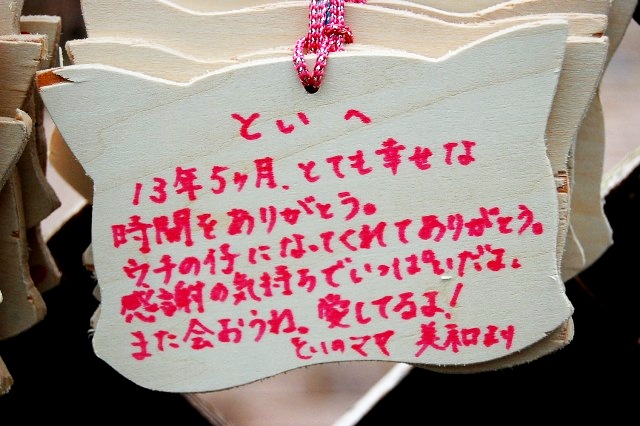 といへ
13年5ヶ月、とても幸せな
時間をありがとう。
ウチの仔になってくれてありがとう。
感謝の気持ちでいっぱいだよ。
また会おうね。愛してるよ!
といのママ 美和より